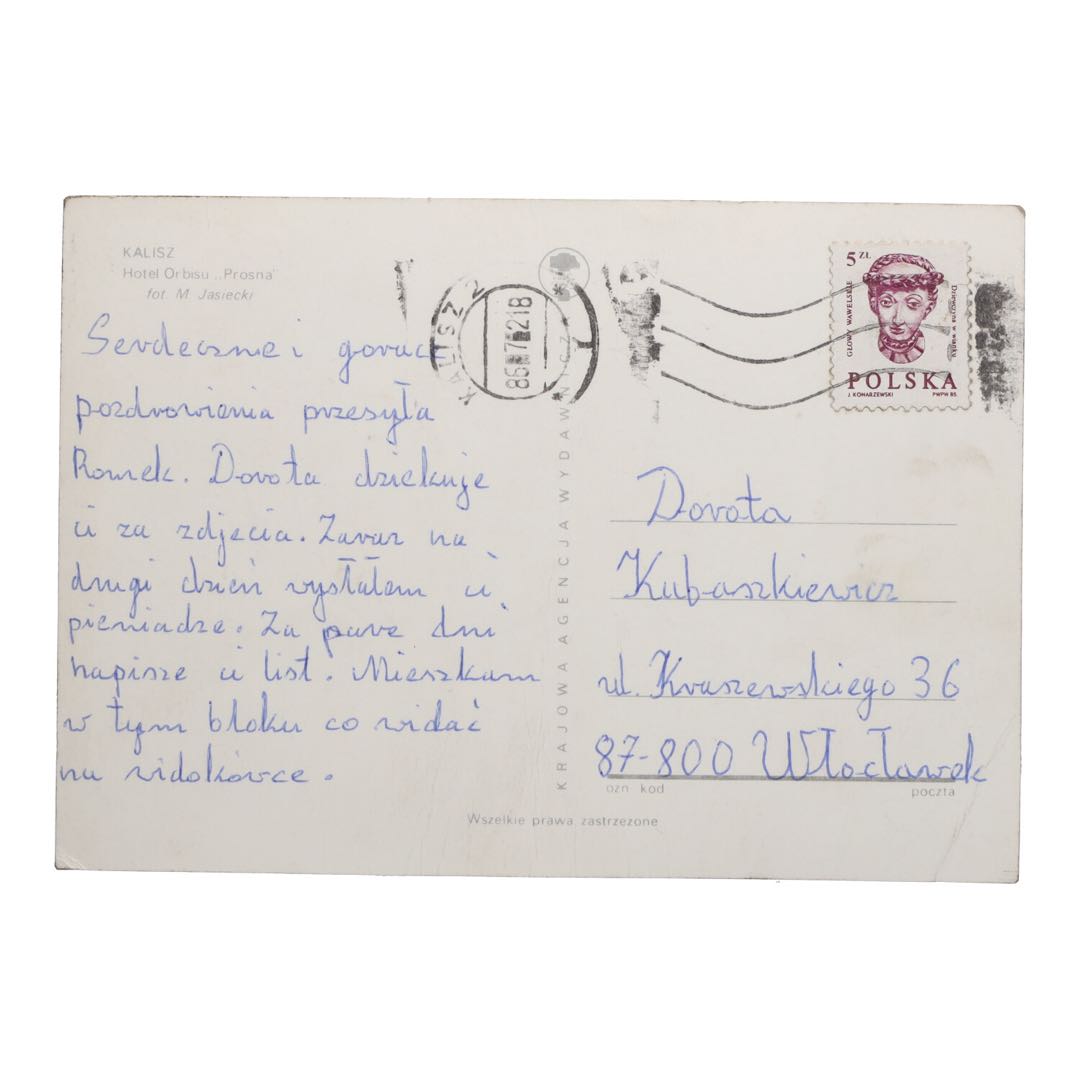 KALISZ
Hotel Orbisu „Prosna"
fot. M. Jasiecki
Serdeczne i gorące
pozdrowienia przesyła
Romek. Dorota dziekuje
ci za zdjecia. Zaraz na
drugi dzień wystałem ci
pieniadze. Za pare dni
napisze ci list. Mieszkam
w tym bloku co widać
na widokówce.
KALISZ 2
KRAJOWA AGENCJA WYDAWNICZA
5 ZŁ
GŁOWY WAWELSKIE
Dziewczyna w wianku
POLSKA
J. KONARZEWSKI PWPW 85
Dorota
Kubaszkiewicz
ul. Kraszewskiego 36
87-800 Włocławek
ozn kod poczta
Wszelkie prawa zastrzeżone